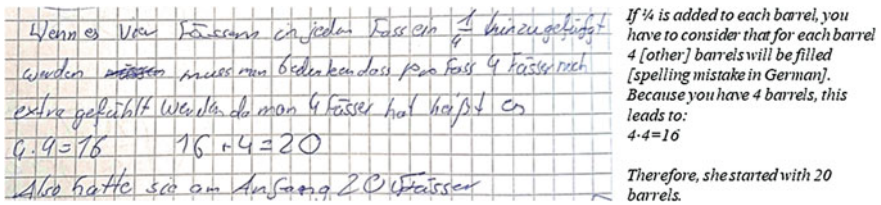 Wenn es vier Fässern in jeden Fass ein 1/4 hinzugefügt
werden muss man bedenken dass pro Fass 4 Fässer noch
extra gefühlt werden da man 4 Fässer hat heißt es
4·4=16 16+4=20
Also hatte sie am Anfang 20 Fässer
If ¼ is added to each barrel, you
have to consider that for each barrel
4 [other] barrels will be filled
[spelling mistake in German].
Because you have 4 barrels, this
leads to:
4·4=16
Therefore, she started with 20
barrels.